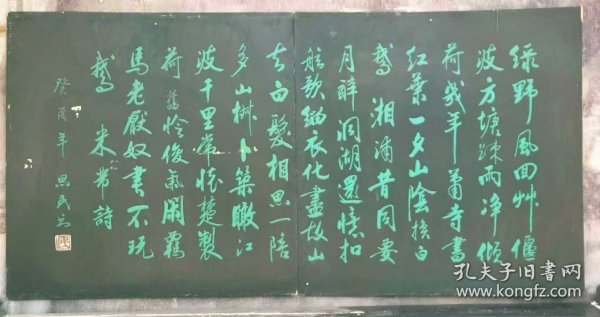 綠野風回艸偃
波方塘疎雨净傾
荷幾年蕭寺書
紅葉一夕山陰換白
鵝湘浦昔同要
月醉洞湖還憶扣
舷歌緇衣化盡故山
去白髮相思一陪
多山椒卜築瞰江
波千里常懷楚製
荷舊憐俊氣閑羈
馬老厭奴書不玩
鵝 米芾詩
癸酉年 思民
孔夫子旧书网
www.kongfz.com